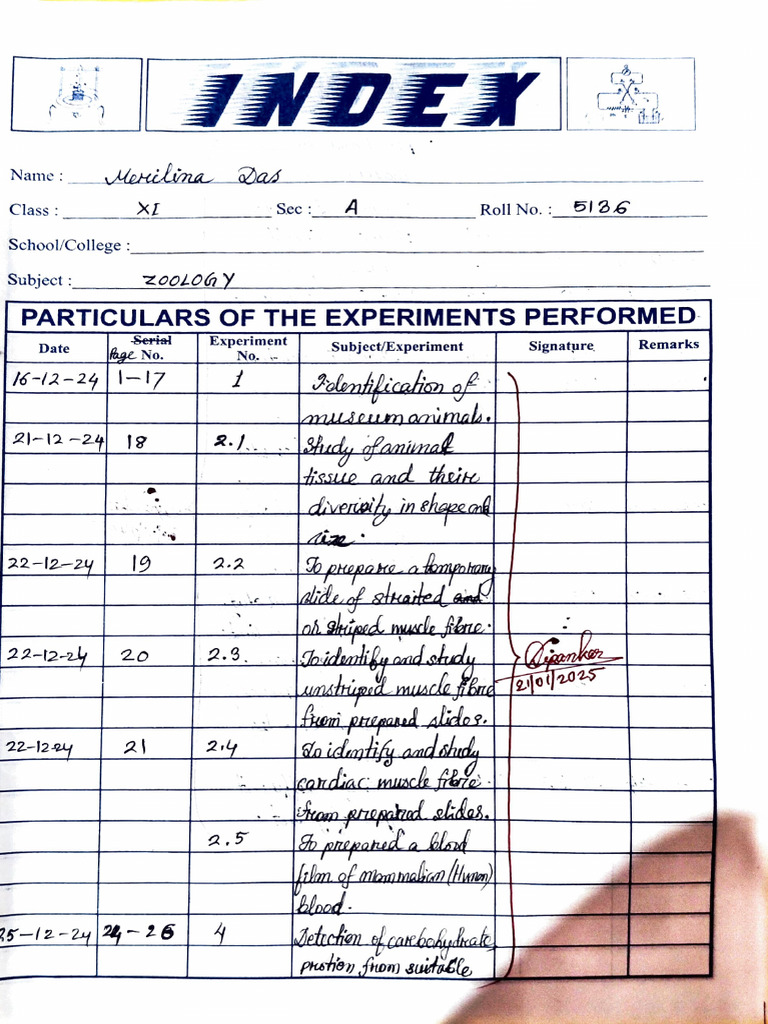 INDEX
Name : Merilina Das
Class : XI Sec : A Roll No. : 5136
School/College :
Subject : ZOOLOGY
PARTICULARS OF THE EXPERIMENTS PERFORMED
Date Serial Page No. Experiment No. Subject/Experiment Signature Remarks
16-12-24 1-17 1 Identification of
museum animals.
21-12-24 18 2.1 Study of animal
tissue and their
diversity in shape and
size.
22-12-24 19 2.2 To prepare a temporary
slide of straited and
or striped muscle fibre.
22-12-24 20 2.3 To identify and study
unstriped muscle fibre
from prepared slides.
Dipankar
21/01/2025
22-12-24 21 2.4 To identify and study
cardiac muscle fibre
from prepared slides.
2.5 To prepared a blood
film of mammalian (Human)
blood.
25-12-24 24-26 4 Detection of carbohydrate
protion from suitable